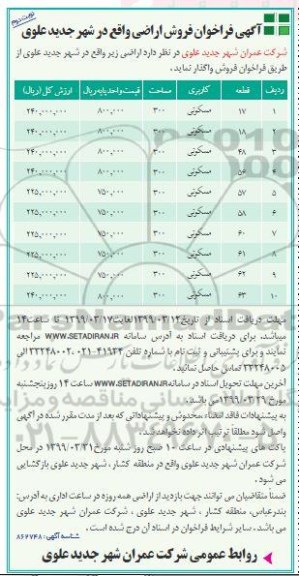 نوبت دوم
آگهی فراخوان فروش اراضی واقع در شهر جدید علوی
شرکت عمران شهر جدید علوی در نظر دارد اراضی زیر واقع در شهر جدید علوی از
طریق فراخوان فروش واگذار نماید.
ردیف قطعه کاربری مساحت قیمت واحد پایه ریال ارزش کل (ریال)
۱ ۱۷ مسکونی ۳۰۰ ۸۰۰,۰۰۰ ۲۴۰,۰۰۰,۰۰۰
۲ ۱۸ مسکونی ۳۰۰ ۸۰۰,۰۰۰ ۲۴۰,۰۰۰,۰۰۰
۳ ۴۸ مسکونی ۳۰۰ ۸۰۰,۰۰۰ ۲۴۰,۰۰۰,۰۰۰
۴ ۵۶ مسکونی ۳۰۰ ۸۰۰,۰۰۰ ۲۴۰,۰۰۰,۰۰۰
۵ ۵۷ مسکونی ۳۰۰ ۷۵۰,۰۰۰ ۲۲۵,۰۰۰,۰۰۰
۶ ۵۸ مسکونی ۳۰۰ ۷۵۰,۰۰۰ ۲۲۵,۰۰۰,۰۰۰
۷ ۶۰ مسکونی ۳۰۰ ۷۵۰,۰۰۰ ۲۲۵,۰۰۰,۰۰۰
۸ ۶۱ مسکونی ۳۰۰ ۷۵۰,۰۰۰ ۲۲۵,۰۰۰,۰۰۰
۹ ۶۲ مسکونی ۳۰۰ ۷۵۰,۰۰۰ ۲۲۵,۰۰۰,۰۰۰
۱۰ ۶۳ مسکونی ۳۰۰ ۸۰۰,۰۰۰ ۲۴۰,۰۰۰,۰۰۰
مهلت دریافت اسناد از تاریخ ۱۳۹۹/۰۳/۱۲ لغایت ۱۳۹۹/۰۳/۱۷ تا ساعت ۱۴
میباشد. برای دریافت اسناد به آدرس سامانه WWW.SETADIRAN.IR مراجعه
نمایند و برای پشتیبانی و ثبت نام با شماره تلفن ۴۱۹۳۴-۰۲۱ ، ۳۳۳۴۸۰۰۲ الی
۳۳۳۴۸۰۰۵ تماس حاصل نمائید.
آخرین مهلت تحویل اسناد در سامانه WWW.SETADIRAN.IR ساعت ۱۴ روز پنجشنبه
مورخ ۱۳۹۹/۰۳/۲۹ می باشد.
به پیشنهادات فاقد امضاء، مخدوش و پیشنهاداتی که بعد از مدت مقرر شده در آگهی
واصل شود مطلقاً ترتیب اثر داده نخواهد شد.
پاکت های پیشنهادی در ساعت ۱۰ صبح روز شنبه مورخ ۱۳۹۹/۰۳/۳۱ در محل
شرکت عمران شهر جدید علوی واقع در منطقه کشار ، شهر جدید علوی بازگشایی
می شود .
ضمنا متقاضیان می توانند جهت بازدید از اراضی همه روزه در ساعت اداری به آدرس:
بندرعباس، منطقه کشار ، شهر جدید علوی ، شرکت عمران شهر جدید علوی
می باشد ، سایر شرایط فراخوان در اسناد آن درج شده است .
شناسه آگهی: ۸۶۲۷۴۸
روابط عمومی شرکت عمران شهر جدید علوی